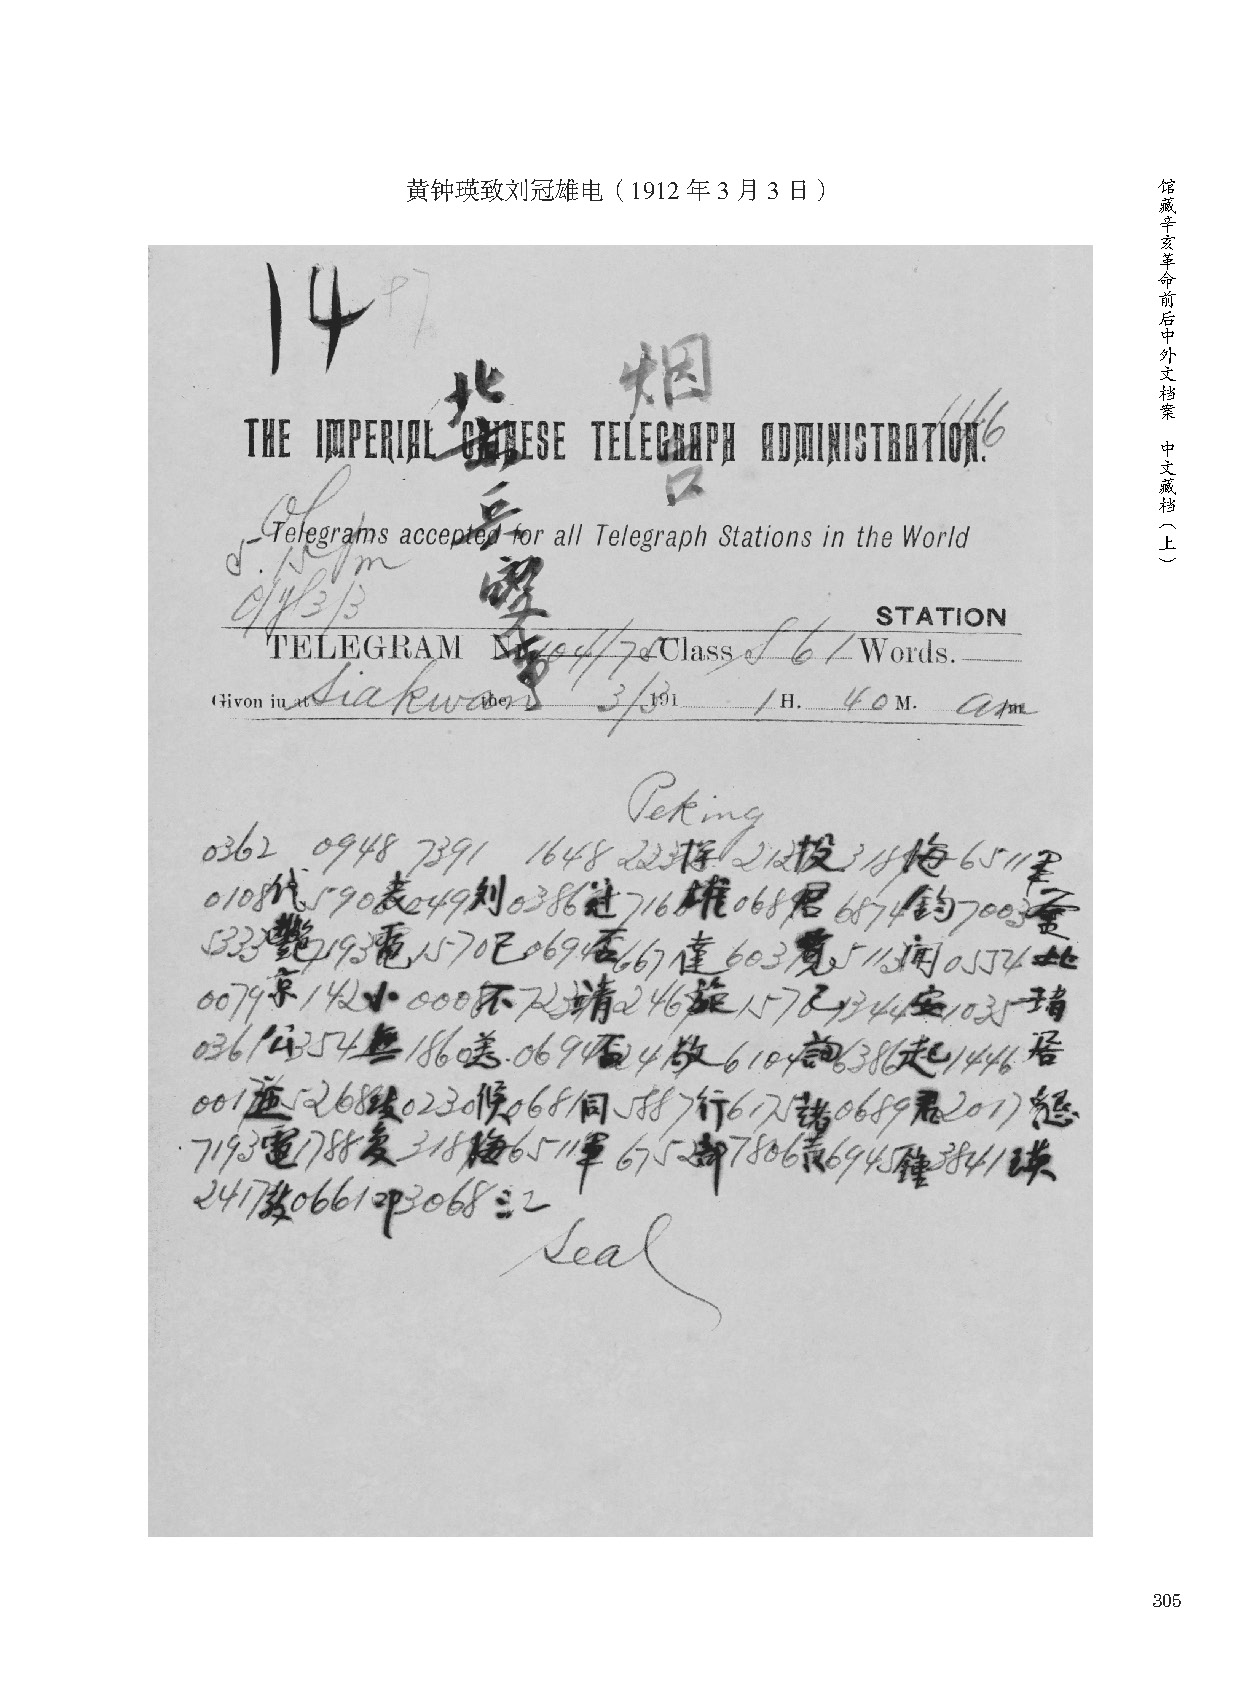 黄钟瑛致刘冠雄电（1912 年 3 月 3 日）
馆藏辛亥革命前后中外文档案 中文藏档（上）
14
烟台
THE IMPERIAL CHINESE TELEGRAPH ADMINISTRATION.
Telegrams accepted for all Telegraph Stations in the World
STATION
TELEGRAM No. 104/75 Class S 61 Words.
Given in at Siakwan the 3/3 191 1 H. 40 M. am
Peking
0362 0948 7391 1648 223 探 212 投 318 海 6511 軍
0108 代 5908 表 0491 刘 0386 冠 7160 雄 0689 君 6874 鈞 7003 霊
5333 艷 7193 電 1570 已 0694 否 6671 達 603 覓 5113 闻 0554 此
0079 京 142 小 0008 不 7231 靖 246 旅 1570 已 1344 安 1035 堵
0361 公 354 無 1860 恙 0694 否 241 敬 6104 詢 6386 起 1446 居
0017 並 5268 致 0230 候 0681 同 5887 行 6175 諸 0689 君 2017 懇
7193 電 1788 复 318 海 6511 軍 6752 部 7806 黄 6945 鍾 3841 瑛
2417 敬 0661 叩 3068 江
Seal
305